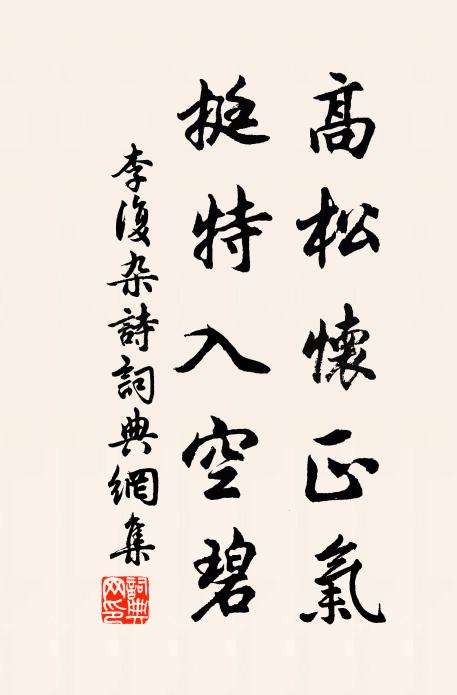 高松懷正氣
挺特入空碧
李復杂詩詞典網集
詞典网印